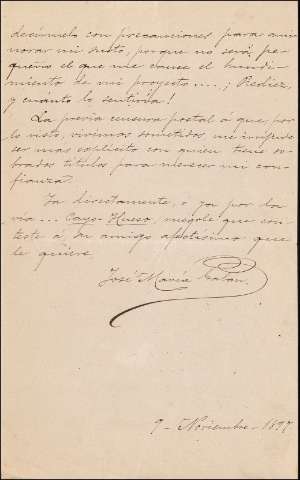 decírmelo con precauciones para ami-
norar mi susto, porque no será pe-
queño el que me cause el hundi-
miento de mi proyecto.... ¡Rediez,
y cuánto lo sentiría!
La previa censura postal á que, por
lo visto, vivimos sometidos, me impide
ser mas explícito con quien tiene so-
brados títulos para merecer mi con-
fianza.
Ya directamente, ó ya por la
vía... Cayo-Hueso, ruégole que con-
teste á su amigo afectísimo que
le quiere,
José María
9- Noviembre- 1897